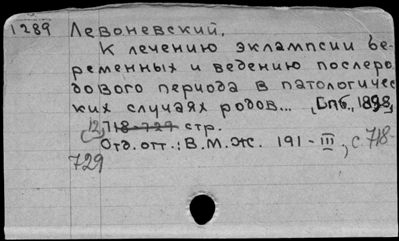 1289 Левоневский,
К лечению эклампсии бе-
ременных и ведению послеро-
дового периода в патологичес
ких случаях родов... [Спб., 1898,
12] 718-729 стр.
Отд. отт.: В.М.Ж. 191-III, с. 718-
729